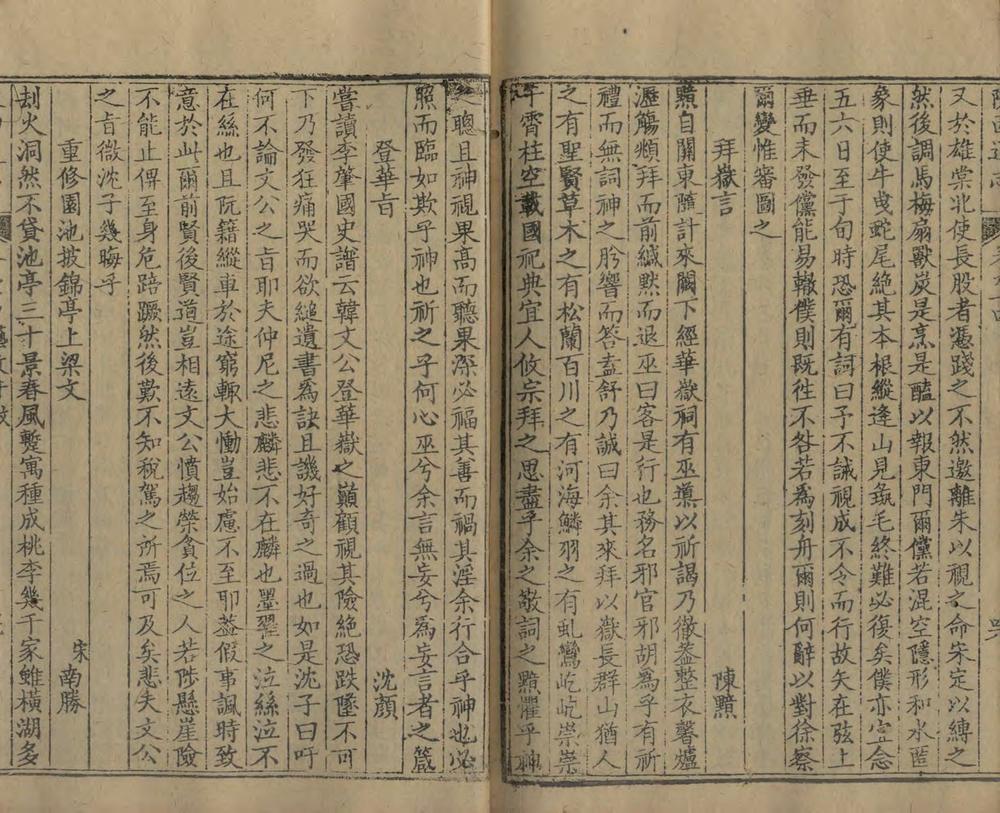 又於雄棠北使長股者憑踐之不然邀離朱以視之命宋定以縛之
然後調馬梅扇獸炭是烹是醢以報東門爾儻若混空隱形和水匿
象則使牛曳蛇尾絕其本根縱逢山見龜毛終難必復矣僕亦宜念
五六日至于旬時恐爾有詞曰予不誡視成不令而行故矢在弦上
垂而未發儻能易轍僕則既往不咎若爲刻舟爾則何辭以對徐察
爾變惟審圖之
拜嶽言 陳黯
黯自關東隨計來闕下經華嶽祠有巫導以祈謁乃徹蓋整衣馨爐
瀝觴頫拜而前緘默而退巫曰客是行也務名邪官邪胡爲乎有祈
禮而無詞神之肹響而答盍舒乃誠曰余其來拜以嶽長群山猶人
之有聖賢草木之有松蘭百川之有河海鱗羽之有虬鸞屹屹崇崇
干霄柱空載國祀典宜人攸宗拜之思盡乎余之敬詞之黯懼乎神
之聰且神視果高而聽果深必福其善而禍其淫余行合乎神也必
照而臨如欺乎神也祈之乎何心巫兮余言無妄兮爲妄言者之箴
登華旨 沈顏
嘗讀李肇國史譜云韓文公登華嶽之巔顧視其險絕恐跌墜不可
下乃發狂痛哭而欲縋遺書爲訣且譏好奇之過也如是沈子曰吁
何不論文公之旨耶夫仲尼之悲麟悲不在麟也墨翟之泣絲泣不
在絲也且阮籍縱車於途窮輒大慟豈始慮不至耶葢假事諷時致
意於此爾前賢後賢道豈相遠文公憤趨榮貪位之人若陟懸崖險
不能止俾至身危踣蹶然後歎不知稅駕之所焉可及矣悲夫文公
之旨微沈子幾晦乎
重修園池披錦亭上梁文 宋南勝
刼火洞然不貸池亭三十景春風蹔寓種成桃李幾千家雖橫湖多